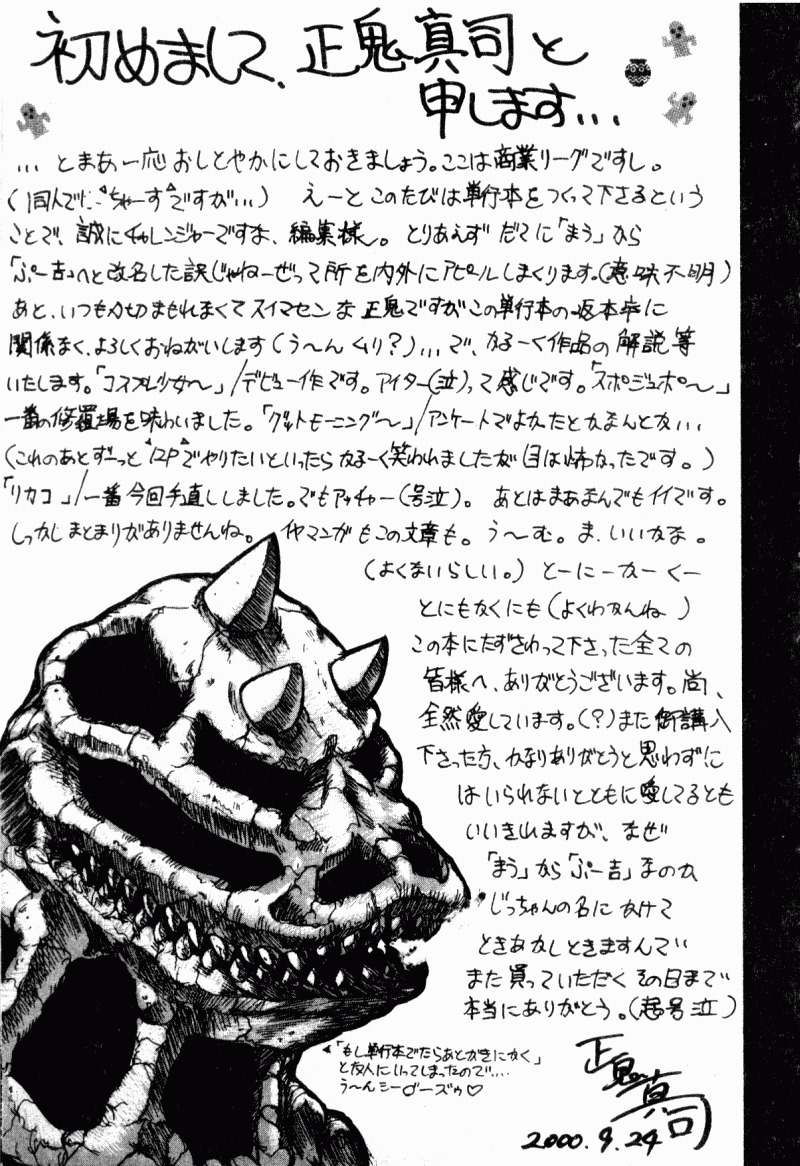 初めまして、正鬼真司と
申します…
…とまあ一応おしとやかにしておきましょう。ここは商業リーグですし。
(同人でに"ちゃーす"ですが…) えーとこのたびは単行本をつくって下さるという
ことで、誠にチャレンジャーですな、編集様。とりあえず だてに「まう」から
「ぷー吉」へと改名した訳じゃねーぜって所を内外にアピールしまくります。(意味不明)
あと、いつも〆切まもれなくてスイマセンな正鬼ですがこの単行本の返本率に
関係なく、よろしくおねがいします(う〜んくり?)…で、かるーく作品の解説等
いたします。「コスプレ少女〜」/デビュー作です。アイター(泣)って感じです。「スポジュポ〜」
一番の修羅場を味わいました。「グットモーニング〜」/アンケートでよかったとかなんとか…
(これのあとずーっと"12P"でやりたいといったらかるーく笑われましたが目は怖かったです。)
「リカコ」/一番今回手直ししました。でもアッチャー(号泣)。 あとはまあなんでもイイです。
しっかしまとまりがありませんね。 イヤマンガもこの文章も。う〜む。ま、いいかな。
(よくないらしい。) とーにーかーくー
とにもかくにも(よくわかんね )
この本にたずさわって下さった全ての
皆様へ、ありがとうございます。尚、
全然愛しています。(?)また御講入
下さった方、かなりありがとうと思わずに
はいられないとともに愛してるとも
いいきれますが、なぜ
「まう」から「ぷー吉」なのか
じっちゃんの名にかけて
ときあかしときますんで…
また買っていただくその日まで…
本当にありがとう。(超号泣)
「もし単行本でたらあとがきにかく」
と友人にいってしまったので…
う〜んシーダーズゥ♡
正鬼真司
2000.9.24